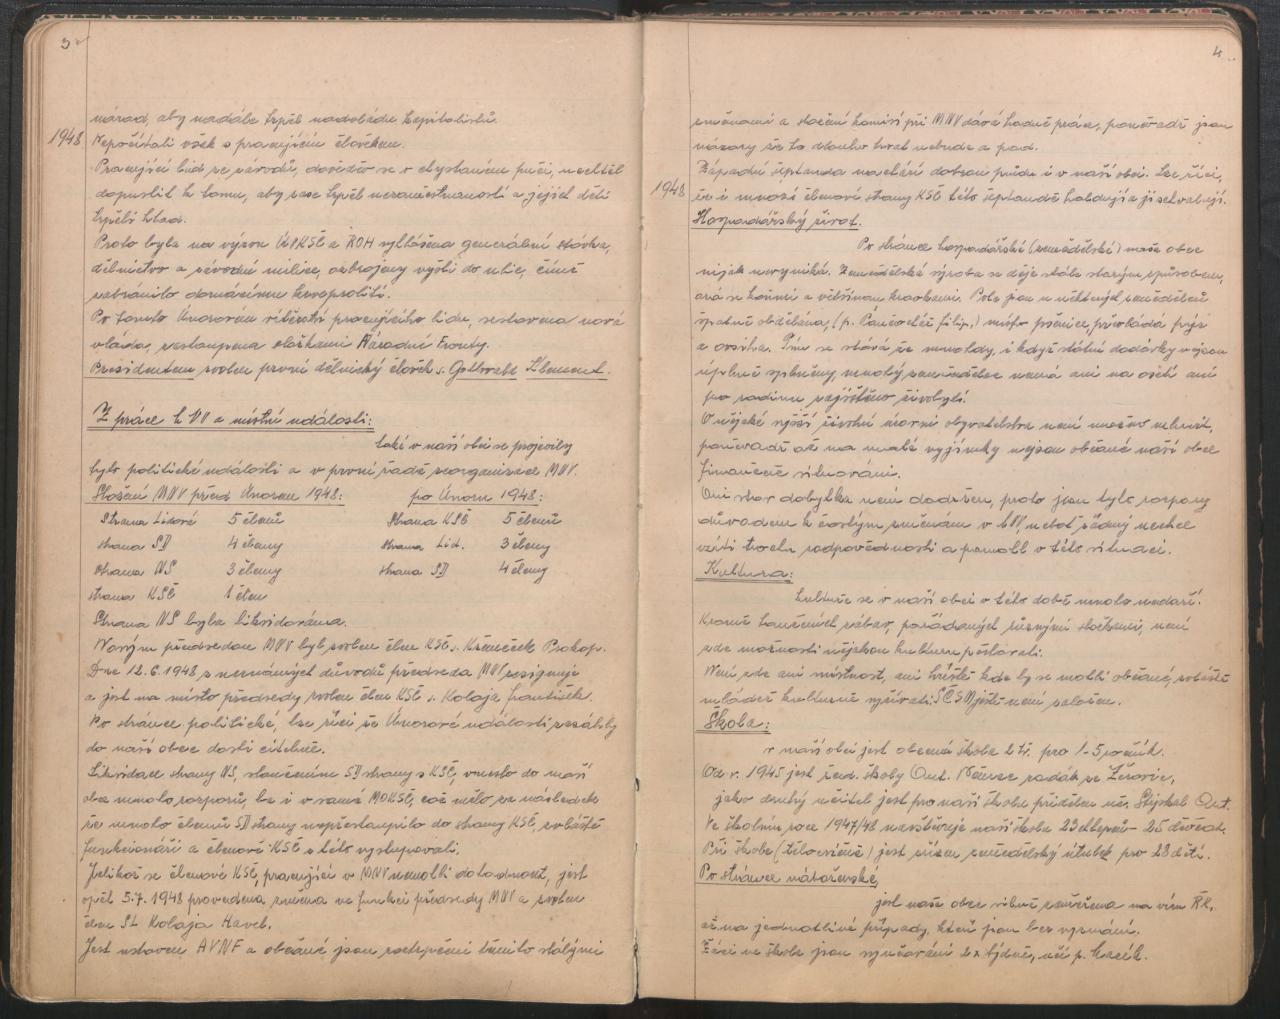 3
národ, aby nadále trpěl nadvládu kapitalistů.
1948 Nepočítali však s pracujícím člověkem.
Pracující lid ze závodů, dověděv se o chystaném puči, nechtěl
dopustit k tomu, aby zase trpěl nezaměstnaností a jejich děti
trpěli hlad.
Proto byla na výzvu ÚVKSČ a ROH vyhlášena generální stávka,
dělnictvo a závodní milice, ozbrojeny vyšli do ulic, čímž
zabránilo domácímu krveprolití.
Po tomto Únorovém vítězství pracujícího lidu, sestavena nová
vláda, zastoupena složkami Národní Fronty.
Presidentem zvolen první dělnický člověk s. Gottwald Klement.
Z práce NV a místní události:
také v naší obci se projevily
tyto politické události a v první řadě reorganisace MNV.
Složení MNV před Únorem 1948: po Únoru 1948:
Strana Lidová 5 členů Strana KSČ 5 členů
strana SD 4 členy strana Lid. 3 členy
strana NS 3 členy strana SD 4 členy
strana KSČ 1 člen
Strana NS byla likvidována.
Novým předsedou MNV byl zvolen člen KSČ s. Křemeček Prokop.
Dne 12.6.1948 z neznámých důvodů předseda MNV resignuje
a jest na místo předsedy zvolen člen KSČ s. Kolaja František.
Po stránce politické, lze říci že Únorové události zasáhly
do naší obce dosti citelně.
Likvidace strany NS, sloučením SD strany s KSČ, vneslo do naší
obce mnoho rozporů, ba i v samé MOKSČ, což mělo za následek
že mnoho členů SD strany nepřestoupilo do strany KSČ, zvláště
funkcionáři a členové KSČ z této vystupovali.
Jelikož se členové KSČ, pracující v MNV nemohli dohodnout, jest
opět 5.7.1948 provedena změna ve funkci předsedy MNV a zvolen
člen SL Kolaja Karel.
Jest ustaven AVNF a občané jsou roztrpčeni těmito stálými
4.
změnami a složení komisí při MNV dává hodně práce, poněvadž jsou
názory že to dlouho trvat nebude a pod.
Západní šeptanda nachází dobrou půdu i v naší obci. Lze říci,
1948 že i mnozí členové strany KSČ této šeptandě holdují a ji schvalují.
Hospodářský život.
Po stránce hospodářské (zemědělské) naše obec
nijak nevyniká. Zemědělská výroba se děje stále starým způsobem,
orá se koňmi a většinou kravkami. Pole jsou u některých zemědělců
špatně obdělána, (p. Filip,) místo pšenice, převládá pýr
a ovsiha. Tím se stává že mnohdy, i když státní dodávky nejsou
úplně splněny, mnohý zemědělec nemá ani na osetí ani
pro rodinu zajištěno živobytí.
O nějaké vyšší životní úrovni obyvatelstva není možno mluvit,
poněvadž až na malé vyjímky nejsou občané naší obce
finančně situováni.
Ani stav dobytka není dodržen, proto jsou tyto rozpory
důvodem k častým změnám v MNV, neboť žádný nechce
vzíti trochu zodpovědnosti a pomohl v této situaci.
Kultura:
kultuře se v naší obci v této době mnoho nedaří.
Kromě tanečních zábav, pořádaných různými složkami, není
zde možnosti nějakou kulturu pěstovati.
Není zde ani místnost, ani hřiště kde by se mohli občané, zvláště
mládež kulturně vyžívati. SČSM ještě není založen.
Škola:
v naší obci jest obecná škola 2 tř. pro 1-5 ročník.
Od r. 1945 jest řed. školy Ant. Němec rodák ze Žeravic,
jako druhý učitel jest pro naši školu přidělen uč. Stýskal Ant.
Ve školním roce 1947/48 navštěvuje naši školu 23 chlapců - 25 děvčat.
Při škole (tělocvičně) jest zřízen zemědělský útulek pro 28 dětí.
Po stránce náboženské,
jest naše obec silně zaměřena na víru ŘK,
až na jednotlivé případy, kteří jsou bez vyznání.
Žáci ve škole jsou vyučováni 2x týdně, učí p. Kaník.